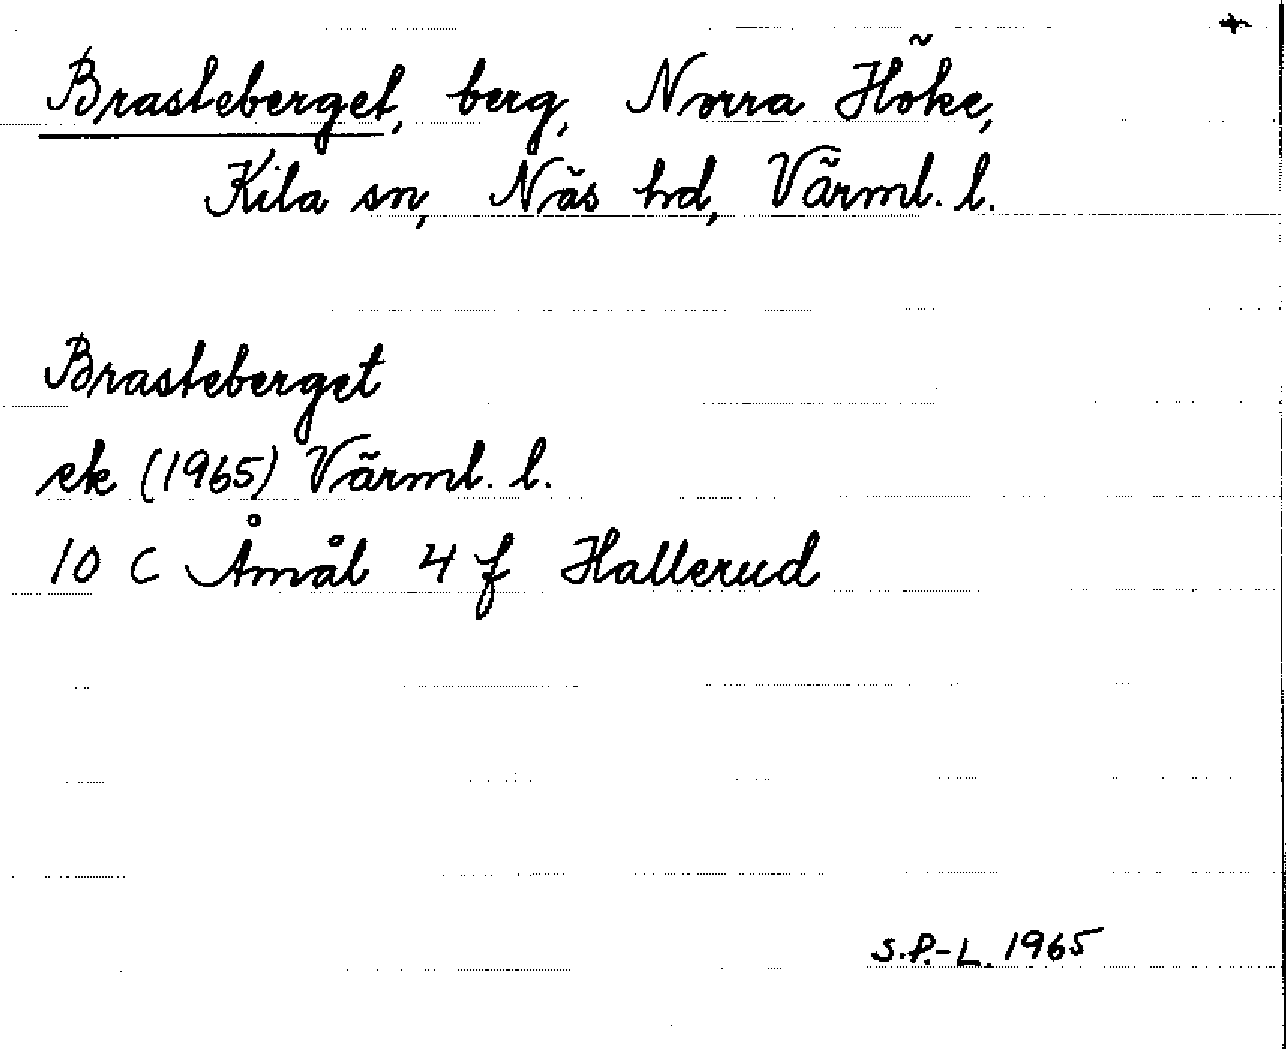 +
Brasteberget, berg, Norra Höke,
Kila sn, Näs hd, Värml. l.
Brasteberget
ek (1965) Värml. l.
10 C Åmål 4 f Hallerud
S.P.-L. 1965